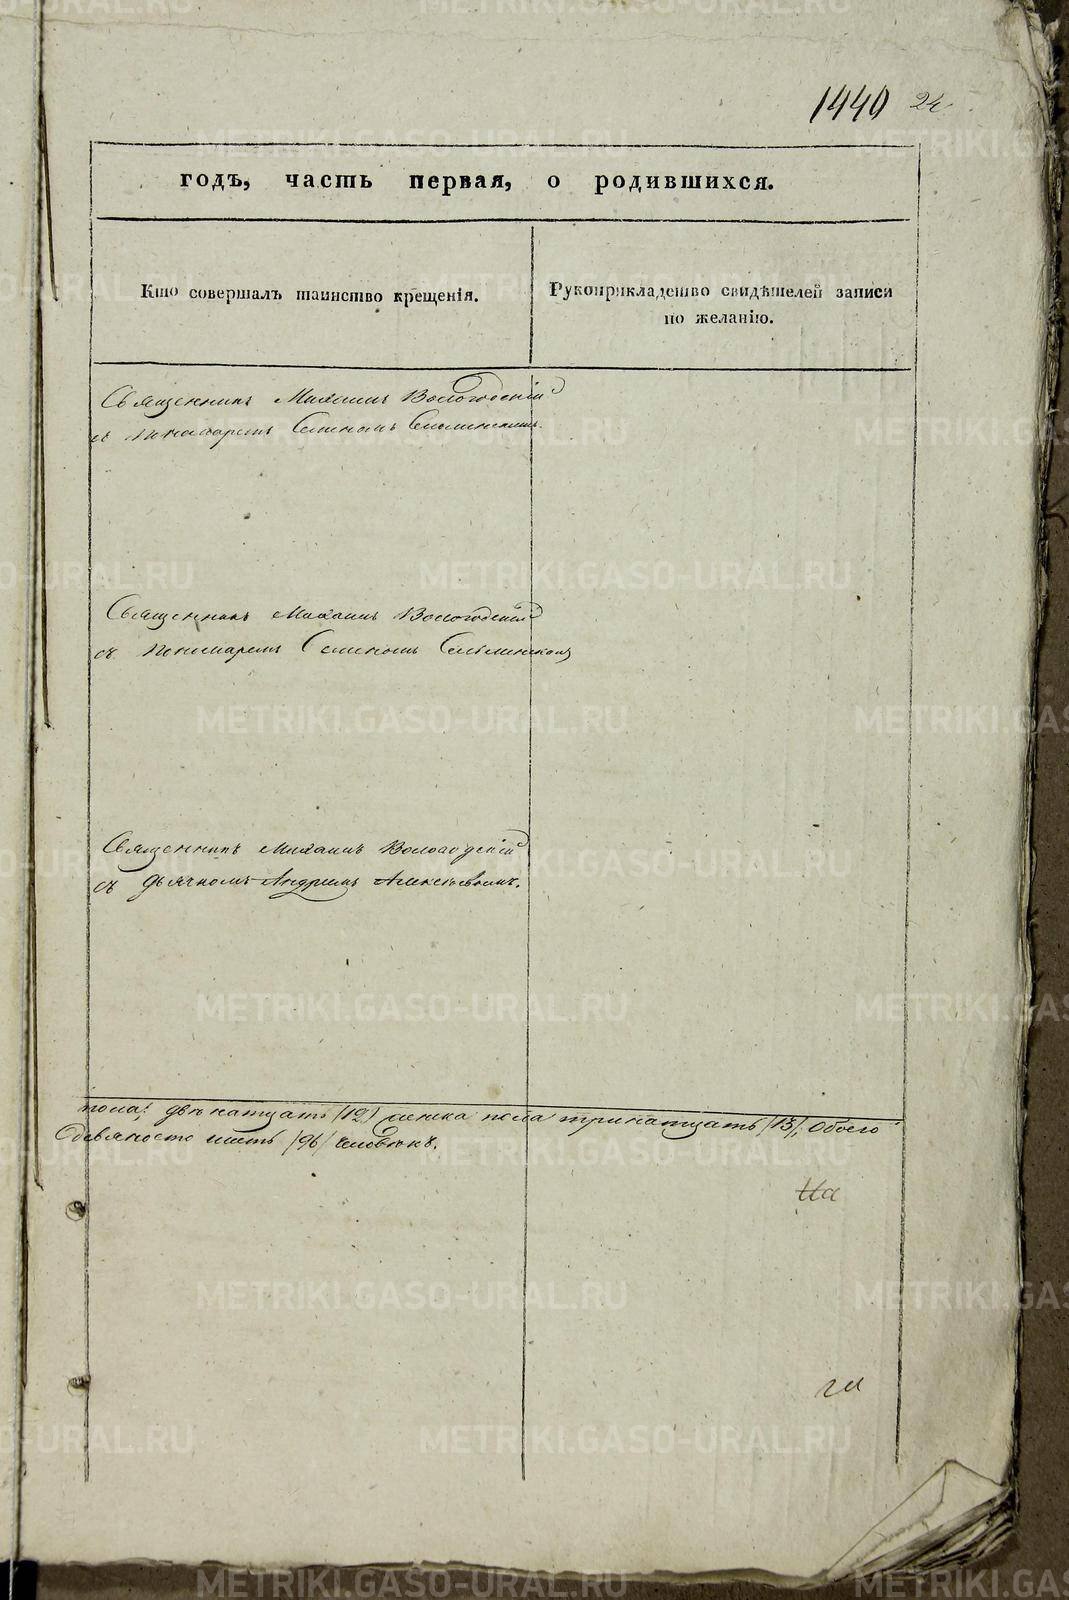 1440 24
годъ, часть первая, о родившихся.
Кто совершалъ таинство крещенія.
Рукоприкладство свидѣтелей записи
по желанію.
Священникъ Михаилъ Вологодскій
съ пономаремъ Семеномъ
Священникъ Михаилъ Вологодскій
съ пономаремъ Семеномъ
Священникъ Михаилъ Вологодскій
съ дьячкомъ Андреемъ Алексѣевымъ.
пола: двѣнатцать /12/ женска пола тринатцать /13/; Обоего
девяносто шесть /96/ человѣкъ.
METRIKI.GASO-URAL.RU